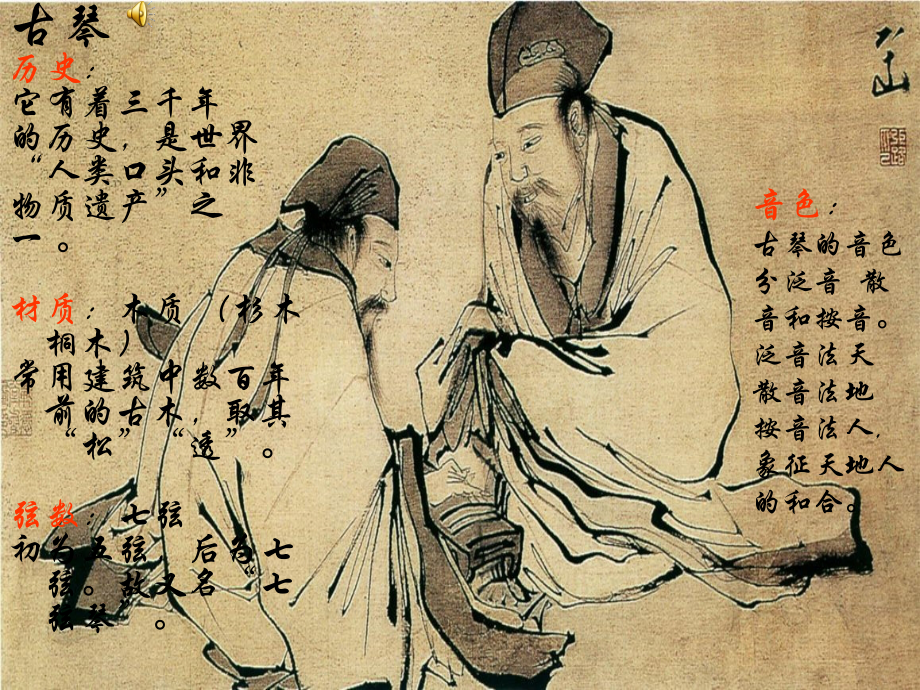 古琴
历史：
它有着三千年
的历史，是世界
“人类口头和非
物质遗产”之
一。
材质：木质（杉木
桐木）
常用建筑中数百年
前的古木，取其
“松”“透”。
弦数：七弦
初为五弦 后为七
弦。故又名“七
弦琴”。
音色：
古琴的音色
分泛音 散
音和按音。
泛音法天
散音法地
按音法人，
象征天地人
的和合。